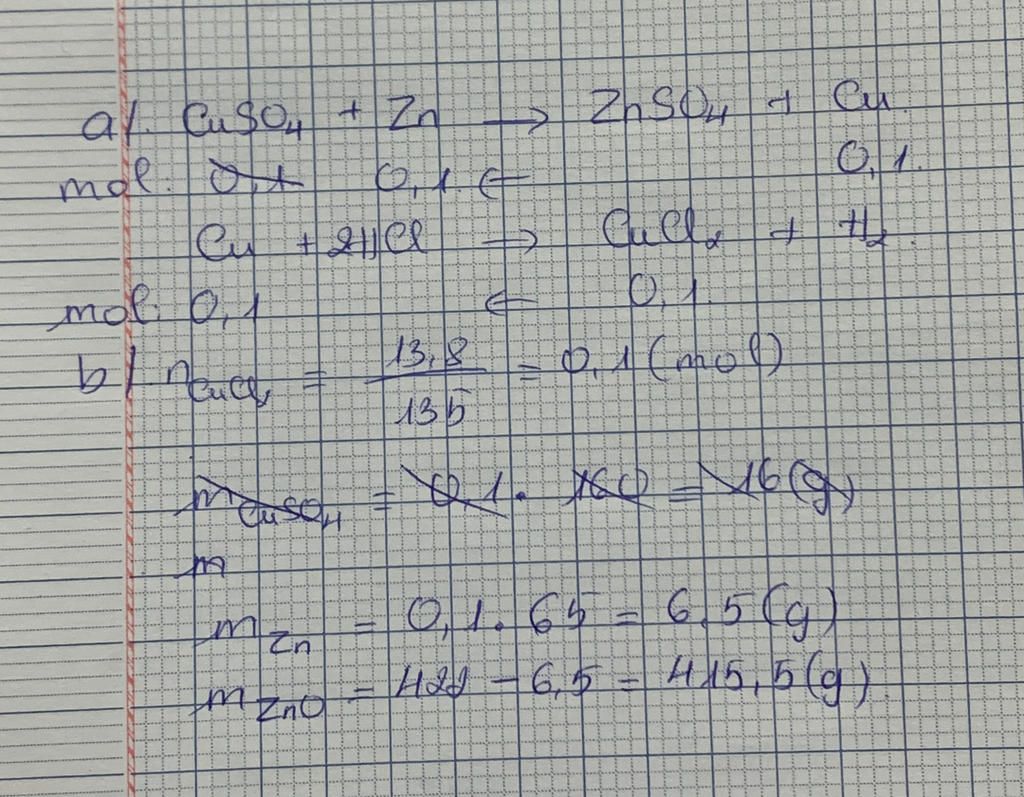 a/. CuSO4 + Zn → ZnSO4 + Cu.
mol: 0,1 0,1 ← 0,1.
Cu + 2HCl → CuCl2 + H2.
mol: 0,1 ← 0,1
b/ nCuCl2 = 13,8/135 = 0,1 (mol)
mCuSO4 = 0,1. 160 = 16 (g)
m
mZn = 0,1. 65 = 6,5 (g)
mZnO = 422 - 6,5 = 415,5 (g).